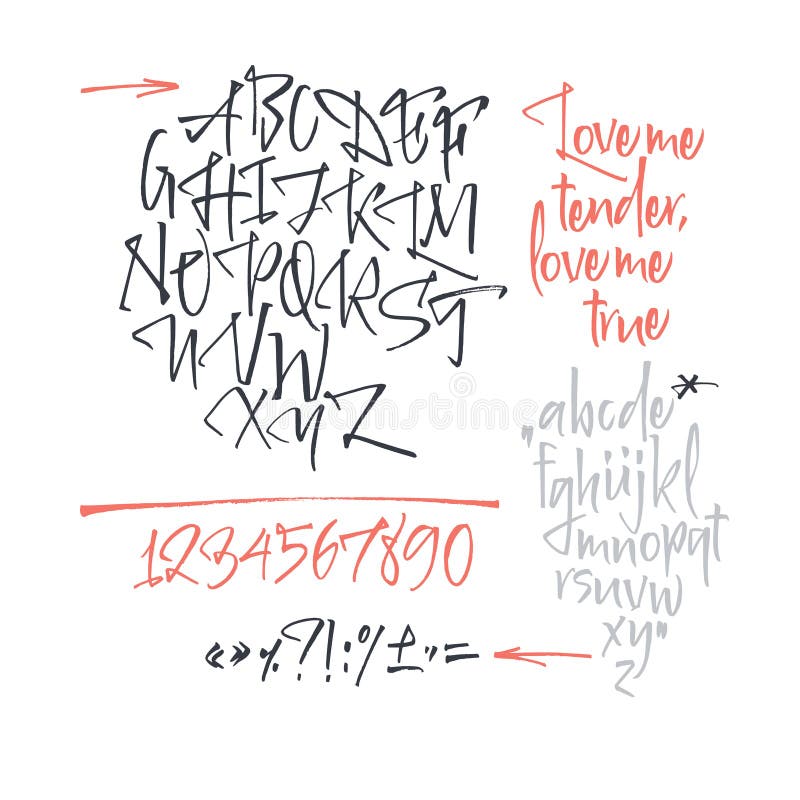 ABCDEF
GHIJKLM
NOPQRST
UVW
XYZ
Love me
tender,
love me
true
abcde*
"fghijkl
mnopqt
rsuvw
xy"
z
1234567890
«»٪?!:%±"=
dreamstime